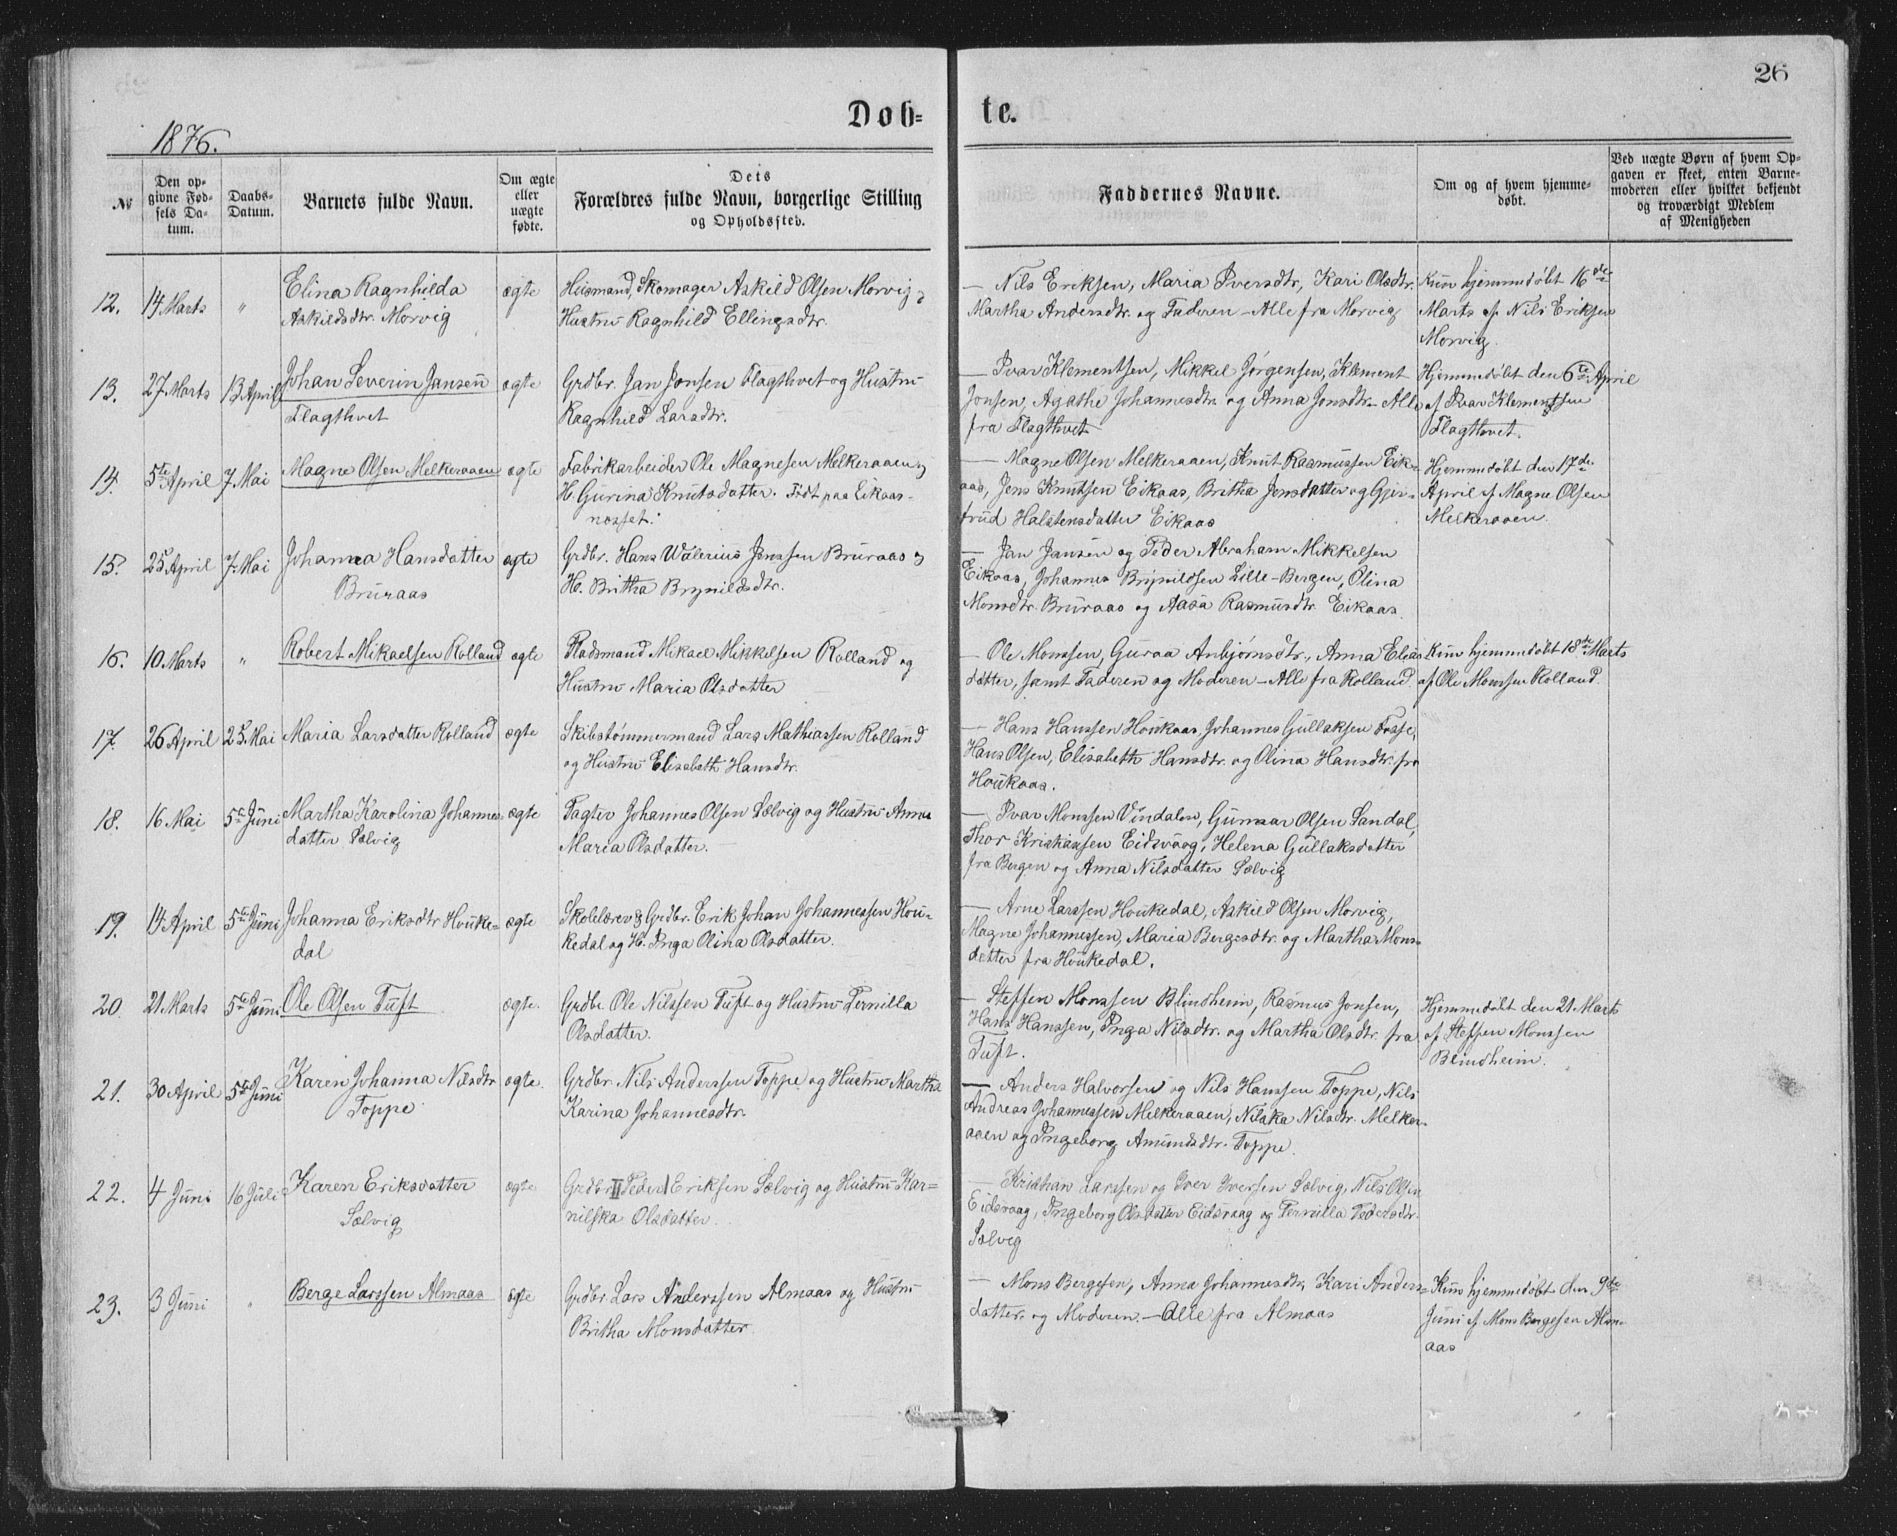 26
Døb=
te.
1876.
№
Den op=
givne Fød=
sels Da=
tum.
Daabs=
Datum.
Barnets fulde Navn.
Om ægte
eller
uægte
fødte.
Dets
Forældres fulde Navn, borgerlige Stilling
og Opholdssted.
Faddernes Navne.
Om og af hvem hjemme=
døbt.
Ved uægte Børn af hvem Op=
gaven er skeet, enten Barne=
moderen eller hvilket bekjendt
og troværdigt Medlem
af Menigheden
12.
14 Marts
"
Elina Ragnhilda
Askildsdtr. Morvig
ægte
Husmand, Skomager Askild Olsen Morvig og
Hustru Ragnhild Ellingsdtr.
— Nils Eriksen, Maria Iversdtr, Kari Olsdtr.
Martha Andersdtr. og Faderen – Alle fra Morvig
Kun hjemmedøbt 16de
Marts af Nils Eriksen
Morvig.
13.
27 Marts
13 April
Johan Severin Jansen
Flagthvet
ægte
Grdbr. Jan Jonsen Flagthvet og Hustru
Ragnhild Larsdtr.
— Ivar Klementsen, Mikkel Jørgensen, Klement
Jonsen, Agathe Johannesdtr. og Anna Jonsdtr – Alle
fra Flagthvet
Hjemmedøbt den 6te April
af Ivar Klementsen
Flagthvet.
14.
5te April
7 Mai
Magne Olsen Melkeraaen
ægte
Fabrikarbeider Ole Magnesen Melkeraaen og
H. Gurina Knutsdatter. Født paa Eikaas-
nosset.
— Magne Olsen Melkeraaen, Knut Rasmussen Eik=
aas, Jens Knutsen Eikaas, Britha Jensdatter og Gjer=
trud Halstensdatter Eikaas
Hjemmedøbt den 17de
April af Magne Olsen
Melkeraaen.
15.
25 April
7 Mai
Johanna Hansdatter
Bruraas
ægte
Grdbr. Hans Walerius Jenssen Bruraas og
H. Britha Brynildsdtr.
— Jan Jansen og Peder Abraham Mikkelsen
Eikaas, Johannes Brynildsen Lille-Bergen, Olina
Monsdtr. Bruraas og Aasa Rasmusdtr. Eikaas.
16.
10 Marts
"
Robert Mikaelsen Rolland
ægte
Pladsmand Mikael Mikkelsen Rolland og
Hustru Maria Olsdatter
— Ole Monssen, Guraa Anbjørnsdtr., Anna Elias
datter, samt Faderen og Moderen – Alle fra Rolland.
Kun hjemmedøbt 18de Marts
af Ole Monssen Rolland.
17.
26 April
25 Mai
Maria Larsdatter Rolland
ægte
Skibstømmermand Lars Mathiassen Rolland
og Hustru Elisabeth Hansdtr.
— Hans Hanssen Houkaas, Johannes Gullaksen Fosse,
Hans Olsen, Elisabeth Hansdtr. og Olina Hansdtr. fra
Houkaas.
18.
16 Mai
5te Juni
Martha Karolina Johannes=
datter Sælvig
ægte
Pagter Johannes Olsen Sælvig og Hustru Anna
Maria Olsdatter.
— Ivar Monssen Vindalen, Gunnar Olsen Sandal,
Thor Kristiansen Eidsvaag, Helena Gullaksdatter
fra Bergen og Anna Nilsdatter Sælvig
19.
14 April
5te Juni
Johanna Eriksdtr. Houke=
dal
ægte
Skolelærer & Grdbr. Erik Johan Johannessen Hou=
kedal og H. Inga Olina Olsdatter.
— Arne Larssen Houkedal, Askild Olsen Morvig,
Magne Johannessen, Maria Bergesdtr. og Martha Mons=
datter fra Houkedal.
20.
21 Marts
5te Juni
Ole Olsen Tuft
ægte.
Grdbr. Ole Nilssen Tuft og Hustru Pernilla
Olsdatter.
— Steffen Monssen Blindheim, Rasmus Jonsen,
Hans Hanssen, Inga Nilsdtr. og Martha Olsdtr. fra
Tuft.
Hjemmedøbt den 21 Marts
af Steffen Monssen
Blindheim.
21.
30 April
5te Juni
Karen Johanna Nilsdtr
Toppe
ægte.
Grdbr. Nils Anderssen Toppe og Hustru Martha
Karina Johannesdtr.
— Anders Halvorsen og Nils Hanssen Toppe, Nils
Andreas Johannessen Melkeraaen, Nilska Nilsdtr. Melker=
aaen og Ingeborg Amundsdtr. Toppe.
22.
4 Juni
16 Juli
Karen Eriksdatter
Sælvig
ægte
Grdbr. Peder Eriksen Sælvig og Hustru Kar=
nilska Olsdatter.
— Kristian Larssen og Iver Iversen Sælvig, Nils Olsen
Eidsvaag, Ingeborg Olsdatter Eidsvaag og Pernilla Pedersdtr.
Sælvig
23.
3 Juni
"
Berge Larssen Almaas
ægte
Grdbr. Lars Anderssen Almaas og Hustru
Britha Monsdatter
— Mons Bergesen, Anna Johannesdtr, Kari Anders=
datter og Moderen. – Alle fra Almaas
Kun hjemmedøbt den 9de
Juni af Mons Bergesen Alm=
aas